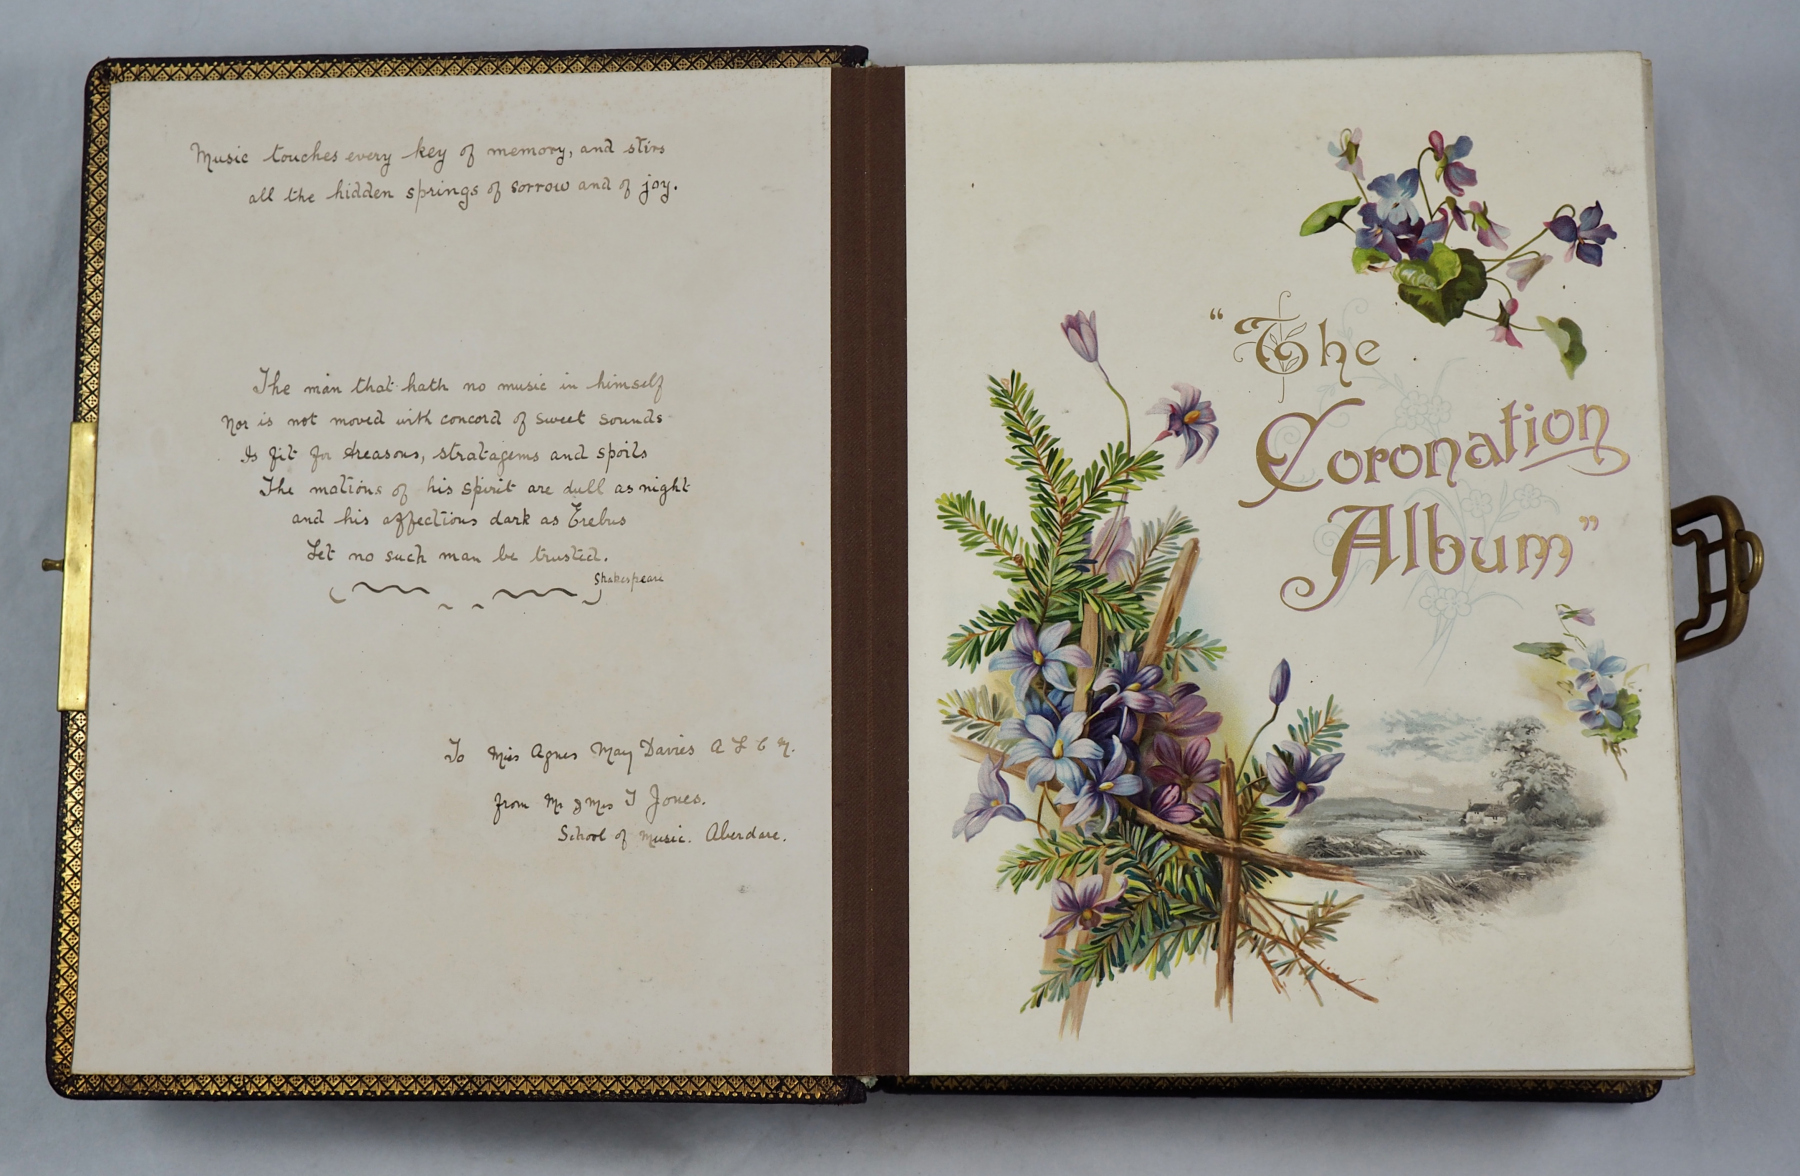 Music touches every key of memory, and stirs
all the hidden springs of sorrow and of joy.
The man that hath no music in himself
Nor is not moved with concord of sweet sounds
Is fit for treasons, stratagems and spoils
The motions of his spirit are dull as night
and his affections dark as Erebus
Let no such man be trusted.
Shakespeare
To Miss Agnes May Davies A L C M.
from Mr & Mrs T Jones.
School of Music. Aberdare.
"The
Coronation
Album"